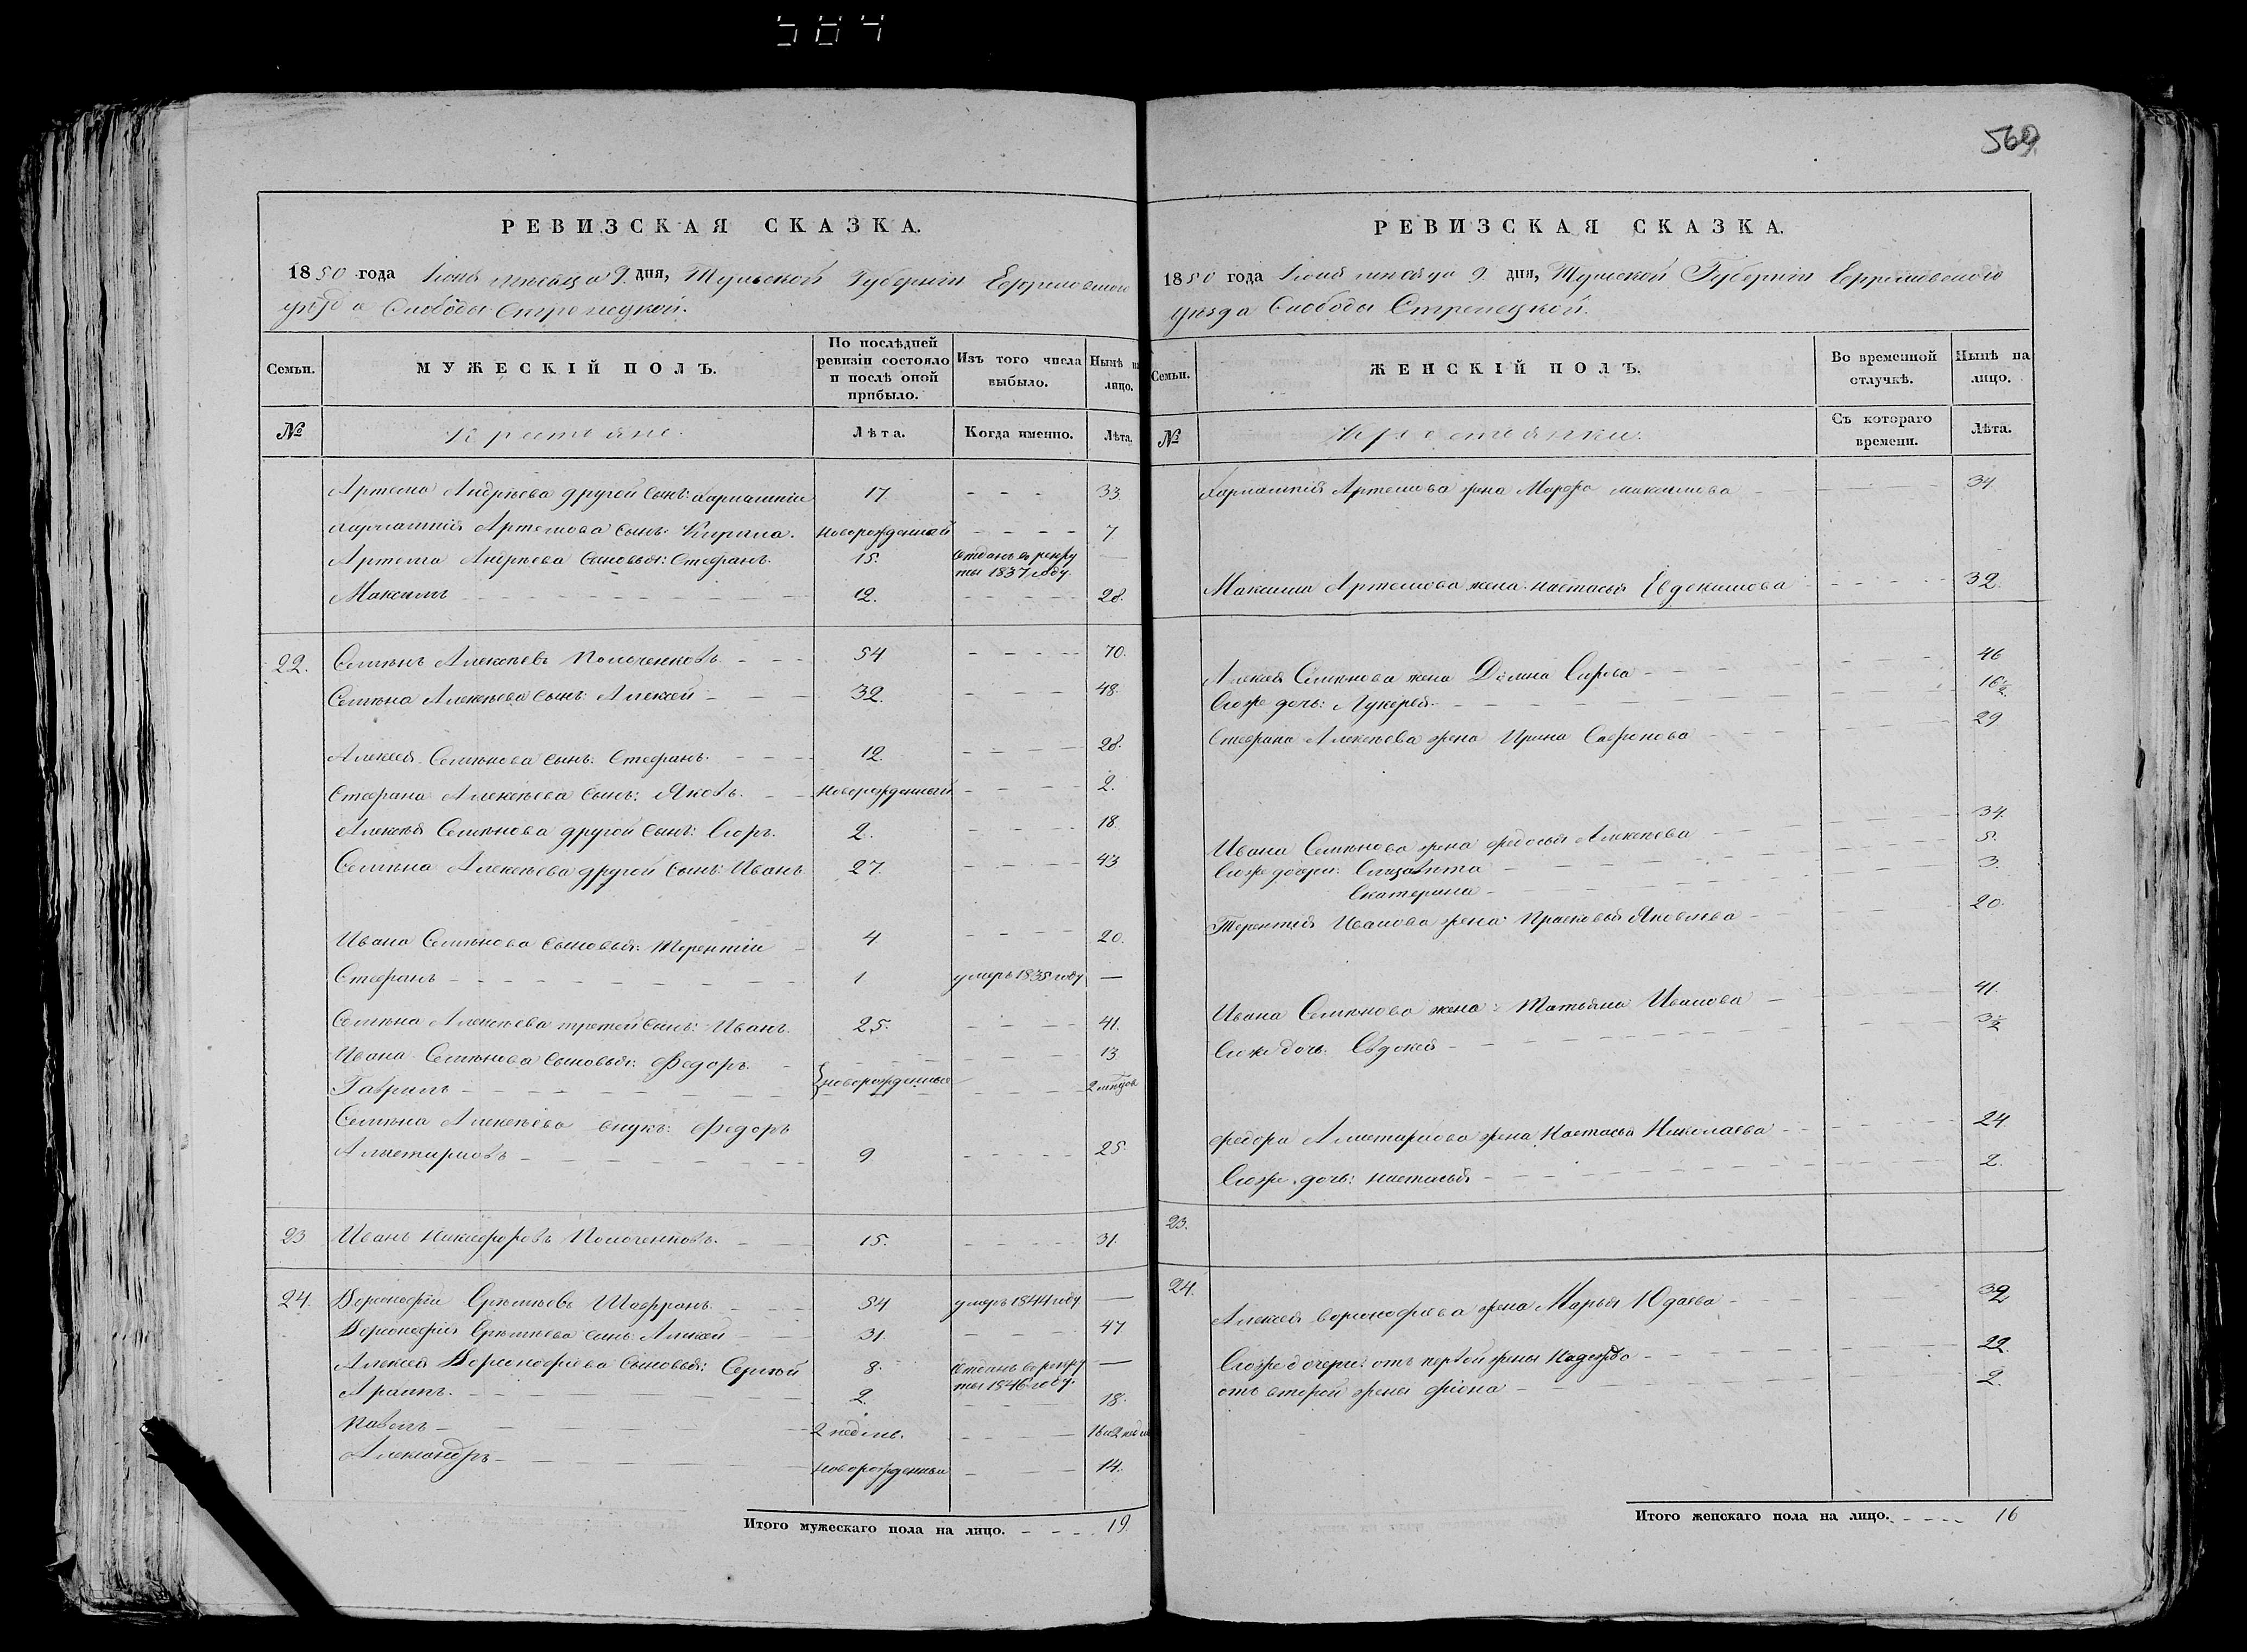 584
РЕВИЗСКАЯ СКАЗКА.
1850 года Іюня мѣсяца 9 дня, Тульской Губерніи Ефремовскаго
уѣзда Слободы Стрелецкой.
Семьи.
МУЖЕСКІЙ ПОЛЪ.
По послѣдней
ревизіи состояло
и послѣ оной
прибыло.
Изъ того числа
выбыло.
Нынѣ на
лицо.
№
Крестьяне.
Лѣта.
Когда именно.
Лѣта.
Артема Андрѣева другой сынъ: 17. - - - 33.
Артемова сынъ: Кирила. новорожденный - - - - 7
Артема Андрѣева сыновья: Стефанъ. 15. Отданъ въ рекру —
ты 1837 году.
Максимъ 12. - - - - 28.
22. Семенъ Алексѣевъ 54 - - - - 70.
Семена Алексѣева сынъ: Алексей 32. - - - 48.
Алексея Семенова сынъ: Стефанъ. 12. - - - - 28.
Стефана Алексѣева сынъ: Яковъ. новорожденный - - - - 2.
Алексѣя Семенова другой сынъ: Егоръ. 2. - - - 18
Семена Алексѣева другой сынъ: Иванъ 27. - - - - 43
Ивана Семенова сыновья: Терентій 4 - - - - 20.
Стефанъ 1 умеръ 1835 году —
Семена Алексѣева третей сынъ: Иванъ. 25. - - - - 41.
Ивана Семенова сыновья: Федоръ. - - - 13
Гаврилъ новорожденные - - - 2 мѣсяцов
Семена Алексѣева внукъ: Федоръ
9 - - - - 25.
23 Иванъ Никифоровъ 15. - - - - 31.
24. Ермолаевъ Шафранъ. 54 умеръ 1844 году —
сынъ: Алексей 31. - - - 47.
Алексея сыновья: Сергей 8. Отданъ въ рекру —
ты 1846 году.
2. 18.
Павелъ 2 недѣль. - - - - 16 и 2 недѣль
Александръ новорожденный - - - 14.
Итого мужескаго пола на лицо. - - - - 19
569
РЕВИЗСКАЯ СКАЗКА.
1850 года Іюня мѣсяца 9 дня, Тульской Губерніи Ефремовскаго
уѣзда Слободы Стрелецкой.
Семьи.
ЖЕНСКІЙ ПОЛЪ.
Во временной
отлучкѣ.
Нынѣ на
лицо.
№
Крестьянки.
Съ котораго
времени.
Лѣта.
Артемова жена Марфа Максимова 34.
Максима Артемова жена: Настасья Евдокимова 32.
Алексея Семенова жена 46
Егоже дочь: Лукерья. 16½
Стефана Алексѣева жена Ирина Сафронова 29
Ивана Семенова жена Федосья Алексѣева 34.
Егоже дочери: Елизавета 5.
Екатерина 3.
Терентія Иванова жена: Прасковья Яковлева 20.
Ивана Семенова жена: Татьяна Иванова 41.
Егоже дочь: Евдокея 3½
Федора жена Настасья Николаева 24
Егоже дочь: Настасья 2.
23.
24.
Алексея жена Марья Юдаева 39
Егоже дочери: отъ первой жены Надежда 22.
отъ второй жены Фіона 2.
Итого женскаго пола на лицо. - - - - 16